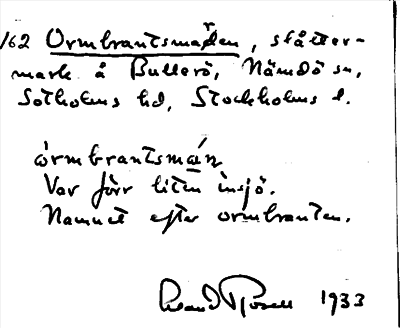 162 Ormbrantsmaren, slåtter-
mark å Bullerö, Nämdö sn,
Sotholms hd, Stockholms l.
òrmbrantsmán
Var förr liten insjö.
Namnet efter ormbranten.
1933